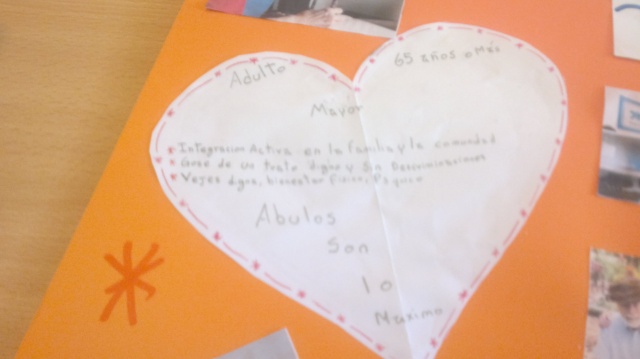 Adulto
65 años o Más
Mayor
* Integracion Activa en la familia y la comunidad
* Gose de un trato digno y sin Descriminaciones
* Vejes digna, bienestar fisico, Psiquico
Abulos
Son
lo
Maximo